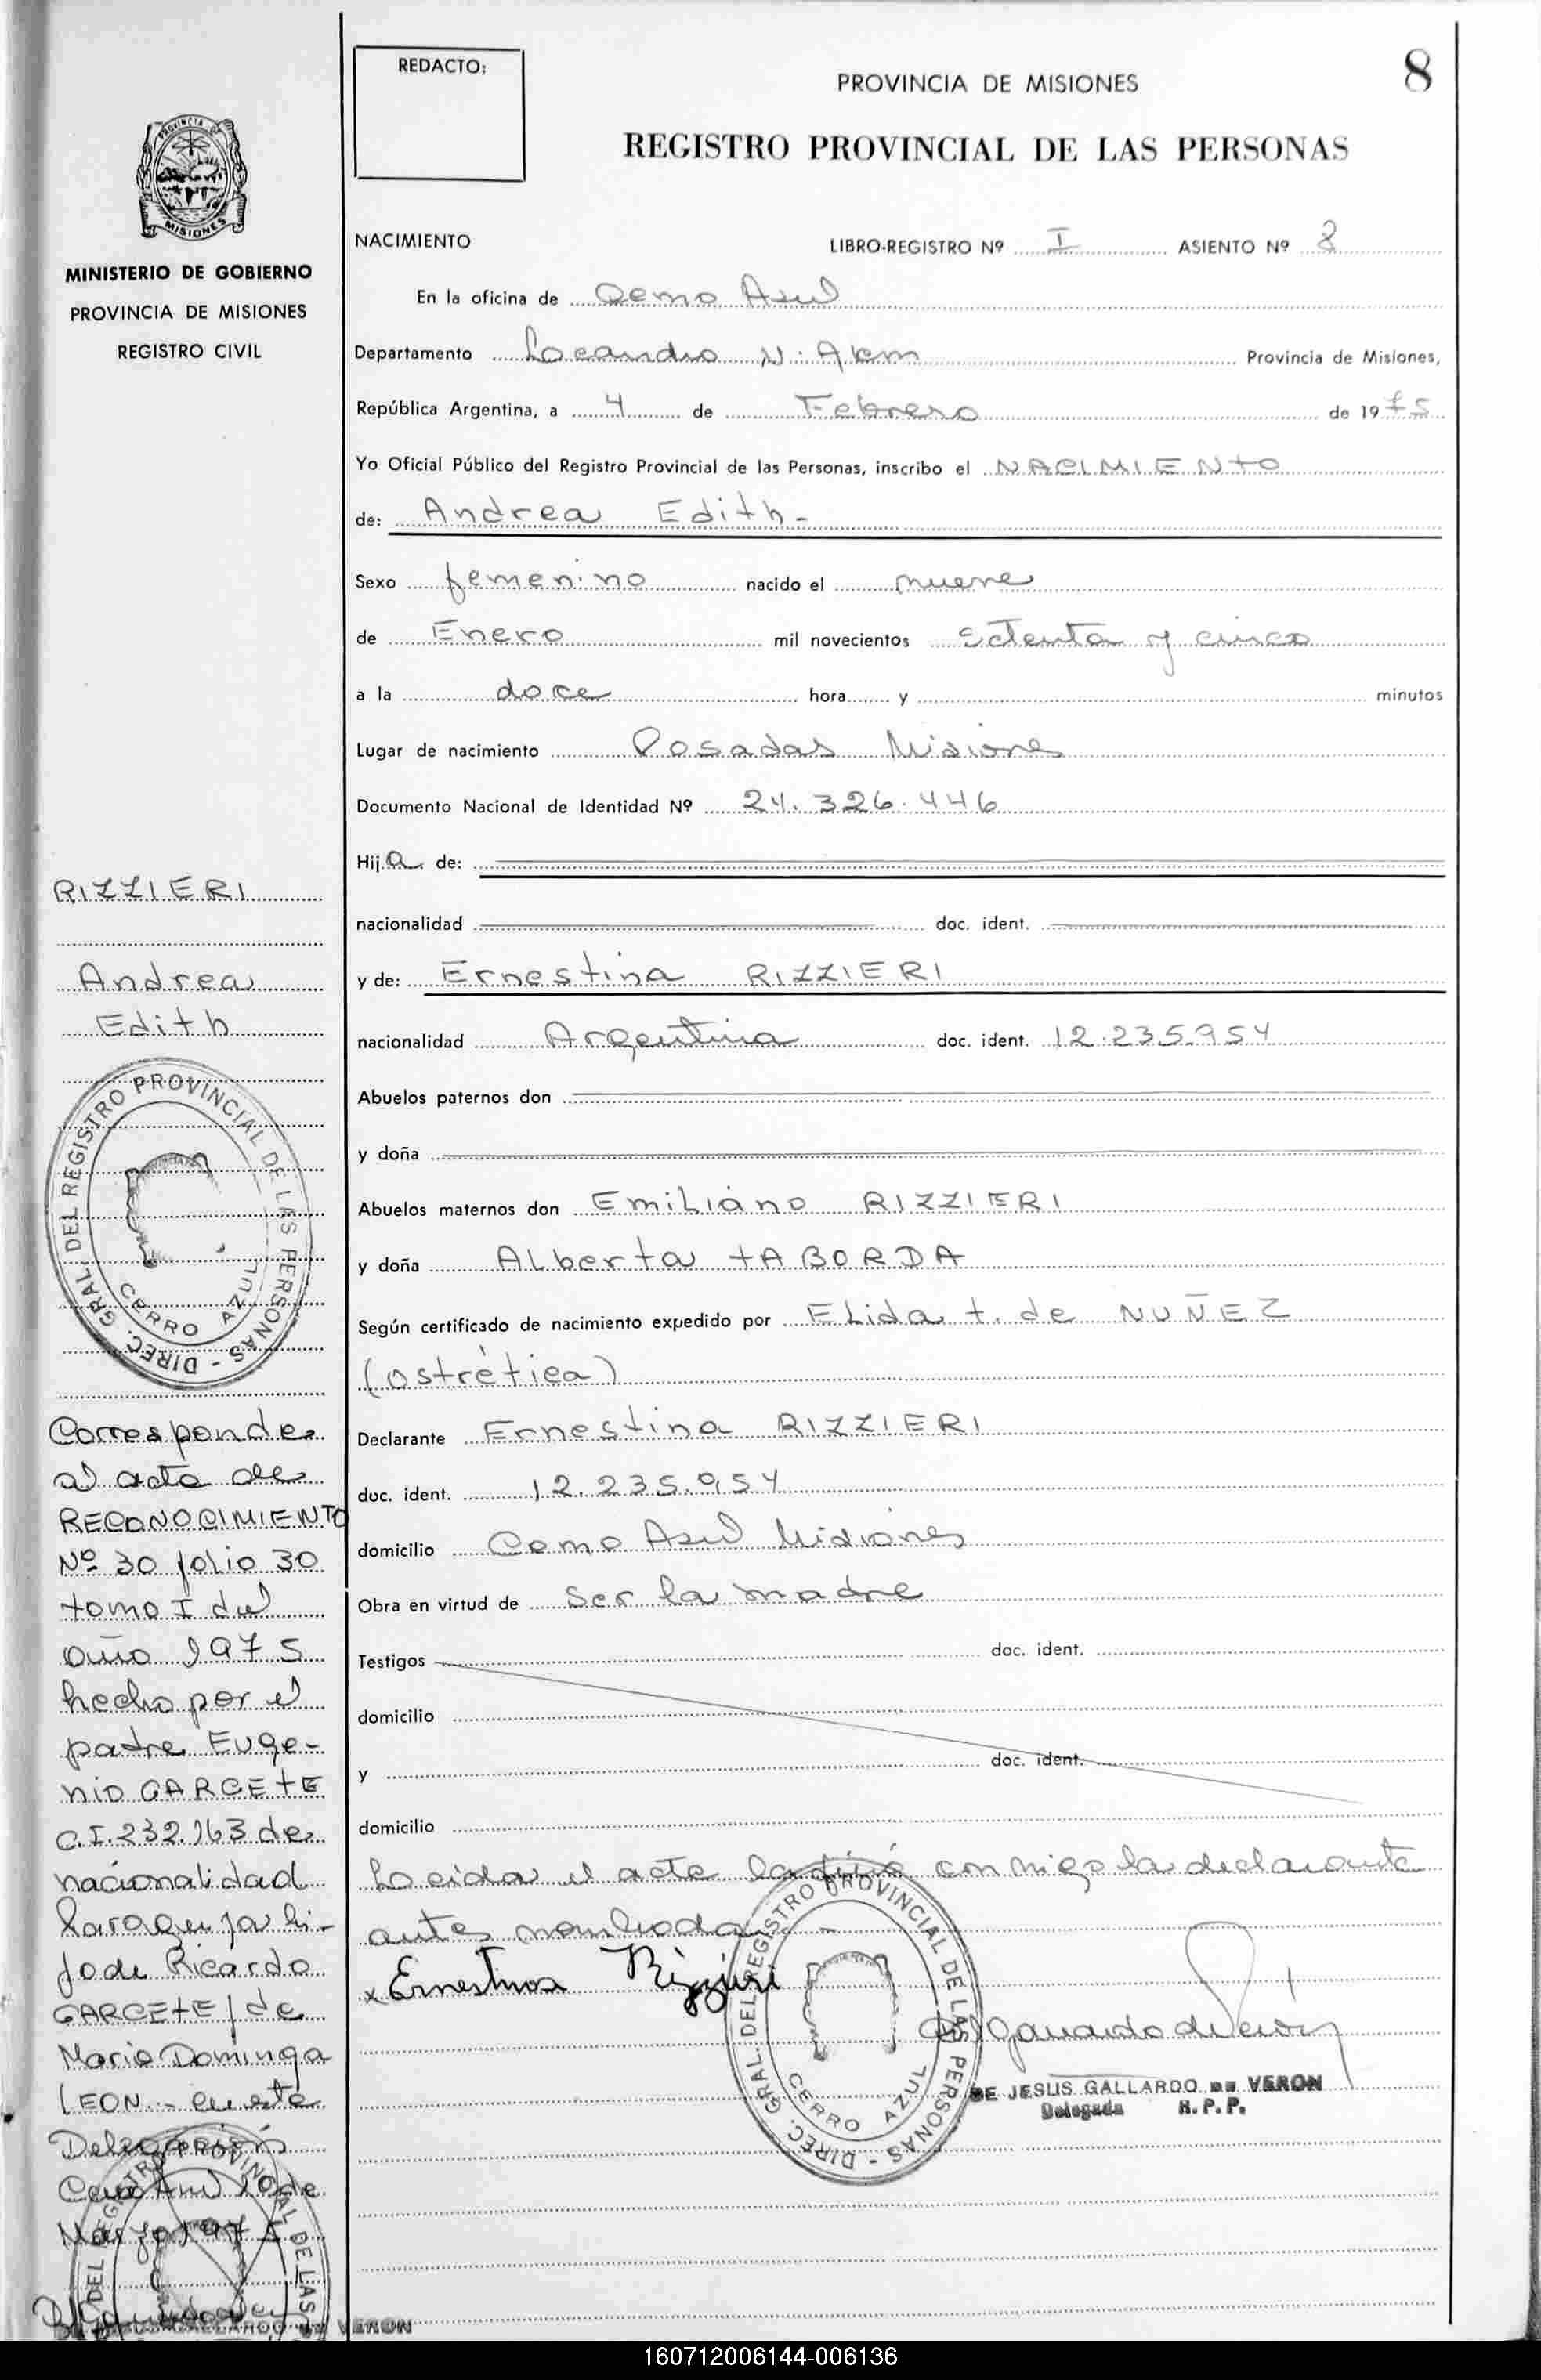 REDACTO:
8
PROVINCIA DE MISIONES
REGISTRO PROVINCIAL DE LAS PERSONAS
PROVINCIA DE
MISIONES
MINISTERIO DE GOBIERNO
PROVINCIA DE MISIONES
REGISTRO CIVIL
NACIMIENTO
LIBRO-REGISTRO Nº I ASIENTO Nº 8
En la oficina de Cerro Azul
Departamento Leandro N. Alem Provincia de Misiones,
República Argentina, a 4 de Febrero de 1975
Yo Oficial Público del Registro Provincial de las Personas, inscribo el NACIMIENTO
de: Andrea Edith-
Sexo femenino nacido el nueve
de Enero mil novecientos Setenta y cinco
a la doce hora y minutos
Lugar de nacimiento Posadas Misiones
Documento Nacional de Identidad Nº 24.326.446
Hija de:
nacionalidad doc. ident.
y de: Ernestina RIZZIERI
nacionalidad Argentina doc. ident. 12.235.954
Abuelos paternos don
y doña
Abuelos maternos don Emiliano RIZZIERI
y doña Alberta TABORDA
Según certificado de nacimiento expedido por Elida t. de NUÑEZ
(ostrética)
Declarante Ernestina RIZZIERI
doc. ident. 12.235.954
domicilio Cerro Azul Misiones
Obra en virtud de Ser la madre
Testigos doc. ident.
domicilio
y doc. ident.
domicilio
Leida el acta la firmó conmigo la declarante
antes nombrada.-
x Ernestina Rizzieri
DE JESUS GALLARDO DE VERON
Delegada R. P. P.
DIREC. GRAL. DEL REGISTRO PROVINCIAL DE LAS PERSONAS -
CERRO AZUL
RIZZIERI
Andrea
Edith
DIREC. GRAL. DEL REGISTRO PROVINCIAL DE LAS PERSONAS -
CERRO AZUL
Corresponde
al acta de
RECONOCIMIENTO
Nº 30 folio 30
tomo I del
año 1975
hecho por el
padre Euge-
nio GARCETE
C.I. 232.163 de
nacionalidad
Paraguaya hi-
jo de Ricardo
GARCETE y de
Maria Dominga
LEON.- en esta
Delegación
Cerro Azul 10 de
Marzo 1975
DEL REGISTRO PROVINCIAL DE LAS
GALLARDO DE VERON
160712006144-006136